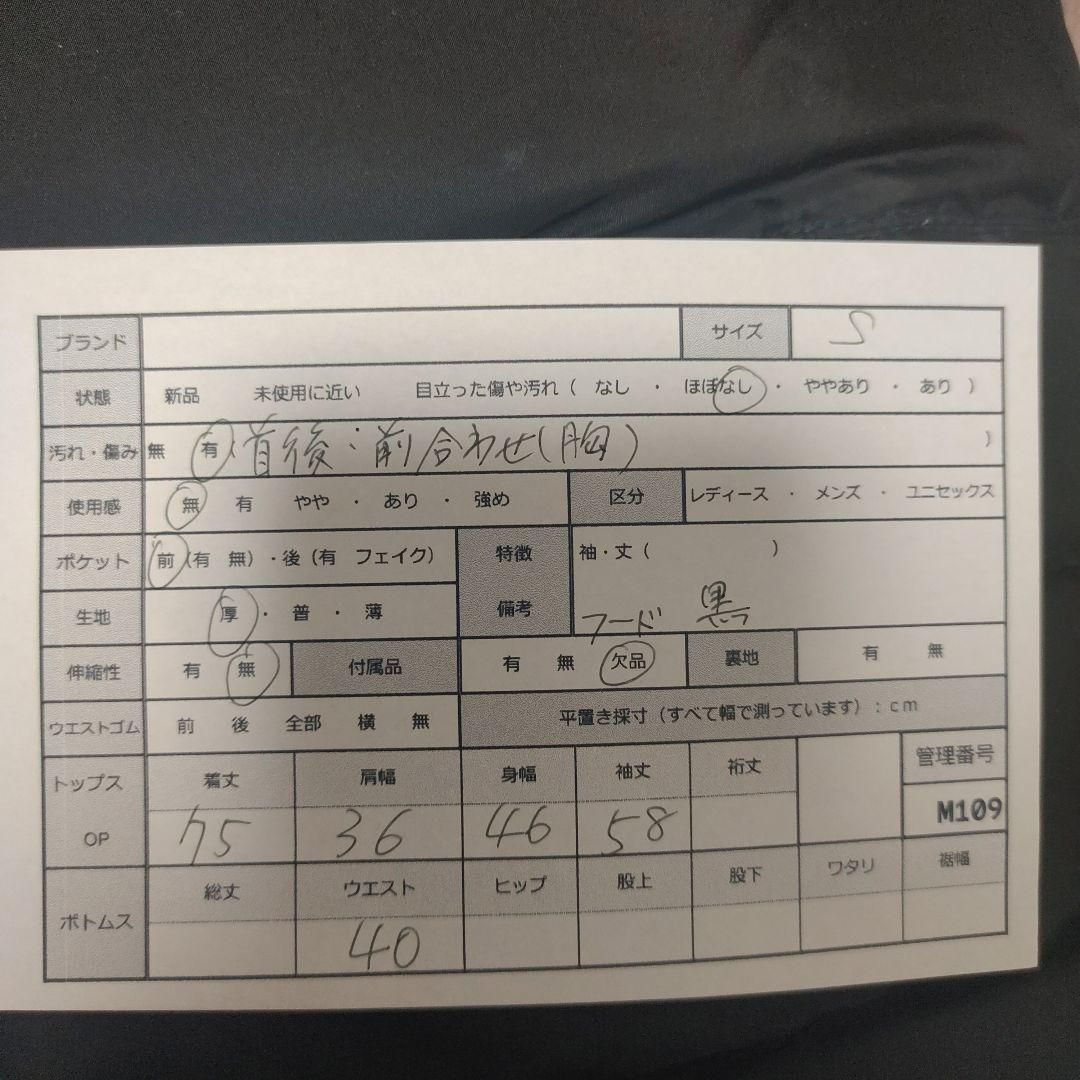 ブランド サイズ S
状態 新品 未使用に近い 目立った傷や汚れ( なし ・ ほぼなし ・ ややあり ・ あり )
汚れ・傷み 無 有( 首後:前合わせ(胸) )
使用感 無 有 やや ・ あり ・ 強め 区分 レディース ・ メンズ ・ ユニセックス
ポケット 前(有 無)・後(有 フェイク) 特徴 袖・丈( )
生地 厚 ・ 普 ・ 薄 備考 フード 黒
伸縮性 有 無 付属品 有 無 欠品 裏地 有 無
ウエストゴム 前 後 全部 横 無 平置き採寸(すべて幅で測っています):cm
トップス 着丈 肩幅 身幅 袖丈 裄丈 管理番号
OP 75 36 46 58 M109
ボトムス 総丈 ウエスト ヒップ 股上 股下 ワタリ 裾幅
40